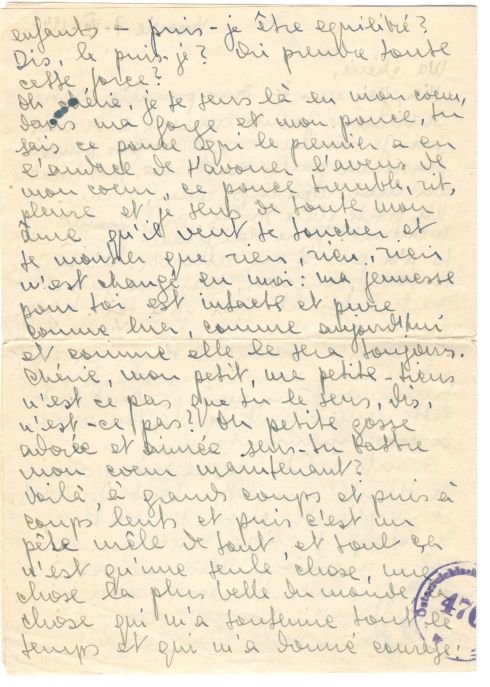 enfants – puis-je être equilibré?
Dis, le puis-je? Où prendre toute
cette force?
Oh chérie, je te sens là en mon coeur,
dans ma gorge et mon pouce, tu
sais ce pouce qui le premier a eu
l'audace de t'avouer l'aveu de
mon coeur, ce pouce tremble, rit,
pleure et je sens de toute mon
âme qu'il veut te toucher et
te montrer que rien, rien, rien
n'est changé en moi: ma jeunesse
pour toi est intacte et pure
comme hier, comme aujourd'hui
et comme elle le sera toujours.
Chérie, mon petit, ma petite
n'est ce pas que tu le sens, dis,
n'est-ce pas? Oh petite gosse
adorée et aimée sens-tu battre
mon coeur maintenant?
Voilà, à grands coups et puis à
coups lents et puis c'est un
pêle mêle de tout, et tout ça
n'est qu'une seule chose, une
chose la plus belle du monde, la
chose qui m'a soutenue tout le
temps et qui m'a donné courage.
476